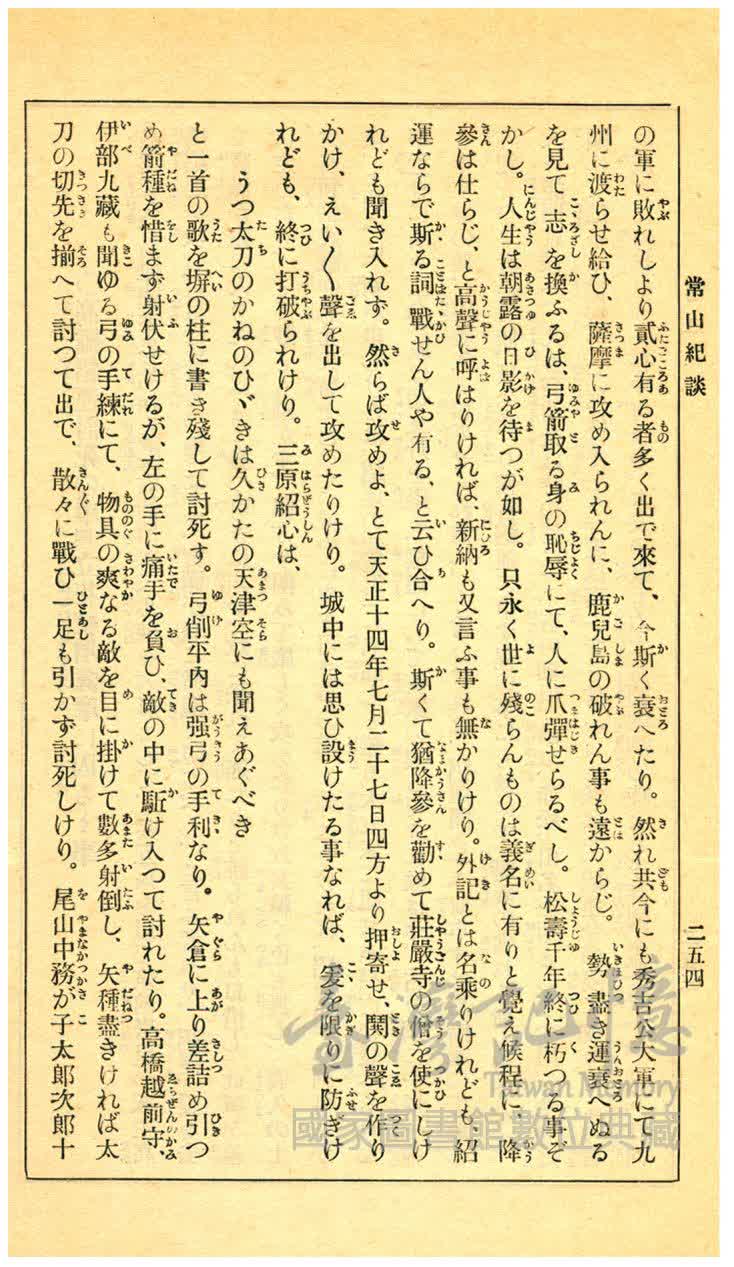 常山紀談
二五四
の軍に敗れしより貳心有る者多く出で來て、今斯く衰へたり。然れ共今にも秀吉公大軍にて九
州に渡らせ給ひ、薩摩に攻め入られんに、鹿兒島の破れん事も遠からじ。勢盡き運衰へぬる
を見て志を換ふるは、弓箭取る身の恥辱にて、人に爪彈せらるべし。松壽千年終に朽つる事ぞ
かし。人生は朝露の日影を待つが如し。只永く世に殘らんものは義名に有りと覺え候程に、降
參は仕らじ、と高聲に呼はりければ、新納も又言ふ事も無かりけり。外記とは名乘りけれども、紹
運ならで斯る詞戰せん人や有る、と云ひ合へり。斯くて猶降參を勸めて莊嚴寺の僧を使にしけ
れども聞き入れず。然らば攻めよ、とて天正十四年七月二十七日四方より押寄せ、関の聲を作り
かけ、えい〳〵聲を出して攻めたりけり。城中には思ひ設けたる事なれば、爰を限りに防ぎけ
れども、終に打破られけり。三原紹心は、
うつ太刀のかねのひゞきは久かたの天津空にも聞えあぐべき
と一首の歌を塀の柱に書き殘して討死す。弓削平内は强弓の手利なり。矢倉に上り差詰め引つ
め箭種を惜まず射伏せけるが、左の手に痛手を負ひ、敵の中に駈け入つて討れたり。高橋越前守、
伊部九藏も聞ゆる弓の手練にて、物具の爽なる敵を目に掛けて數多射倒し、矢種盡きければ太
刀の切先を揃へて討つて出で、散々に戰ひ一足も引かず討死しけり。尾山中務が子太郎次郎十
臺灣記憶
Taiwan Memory
國家圖書館數位典藏